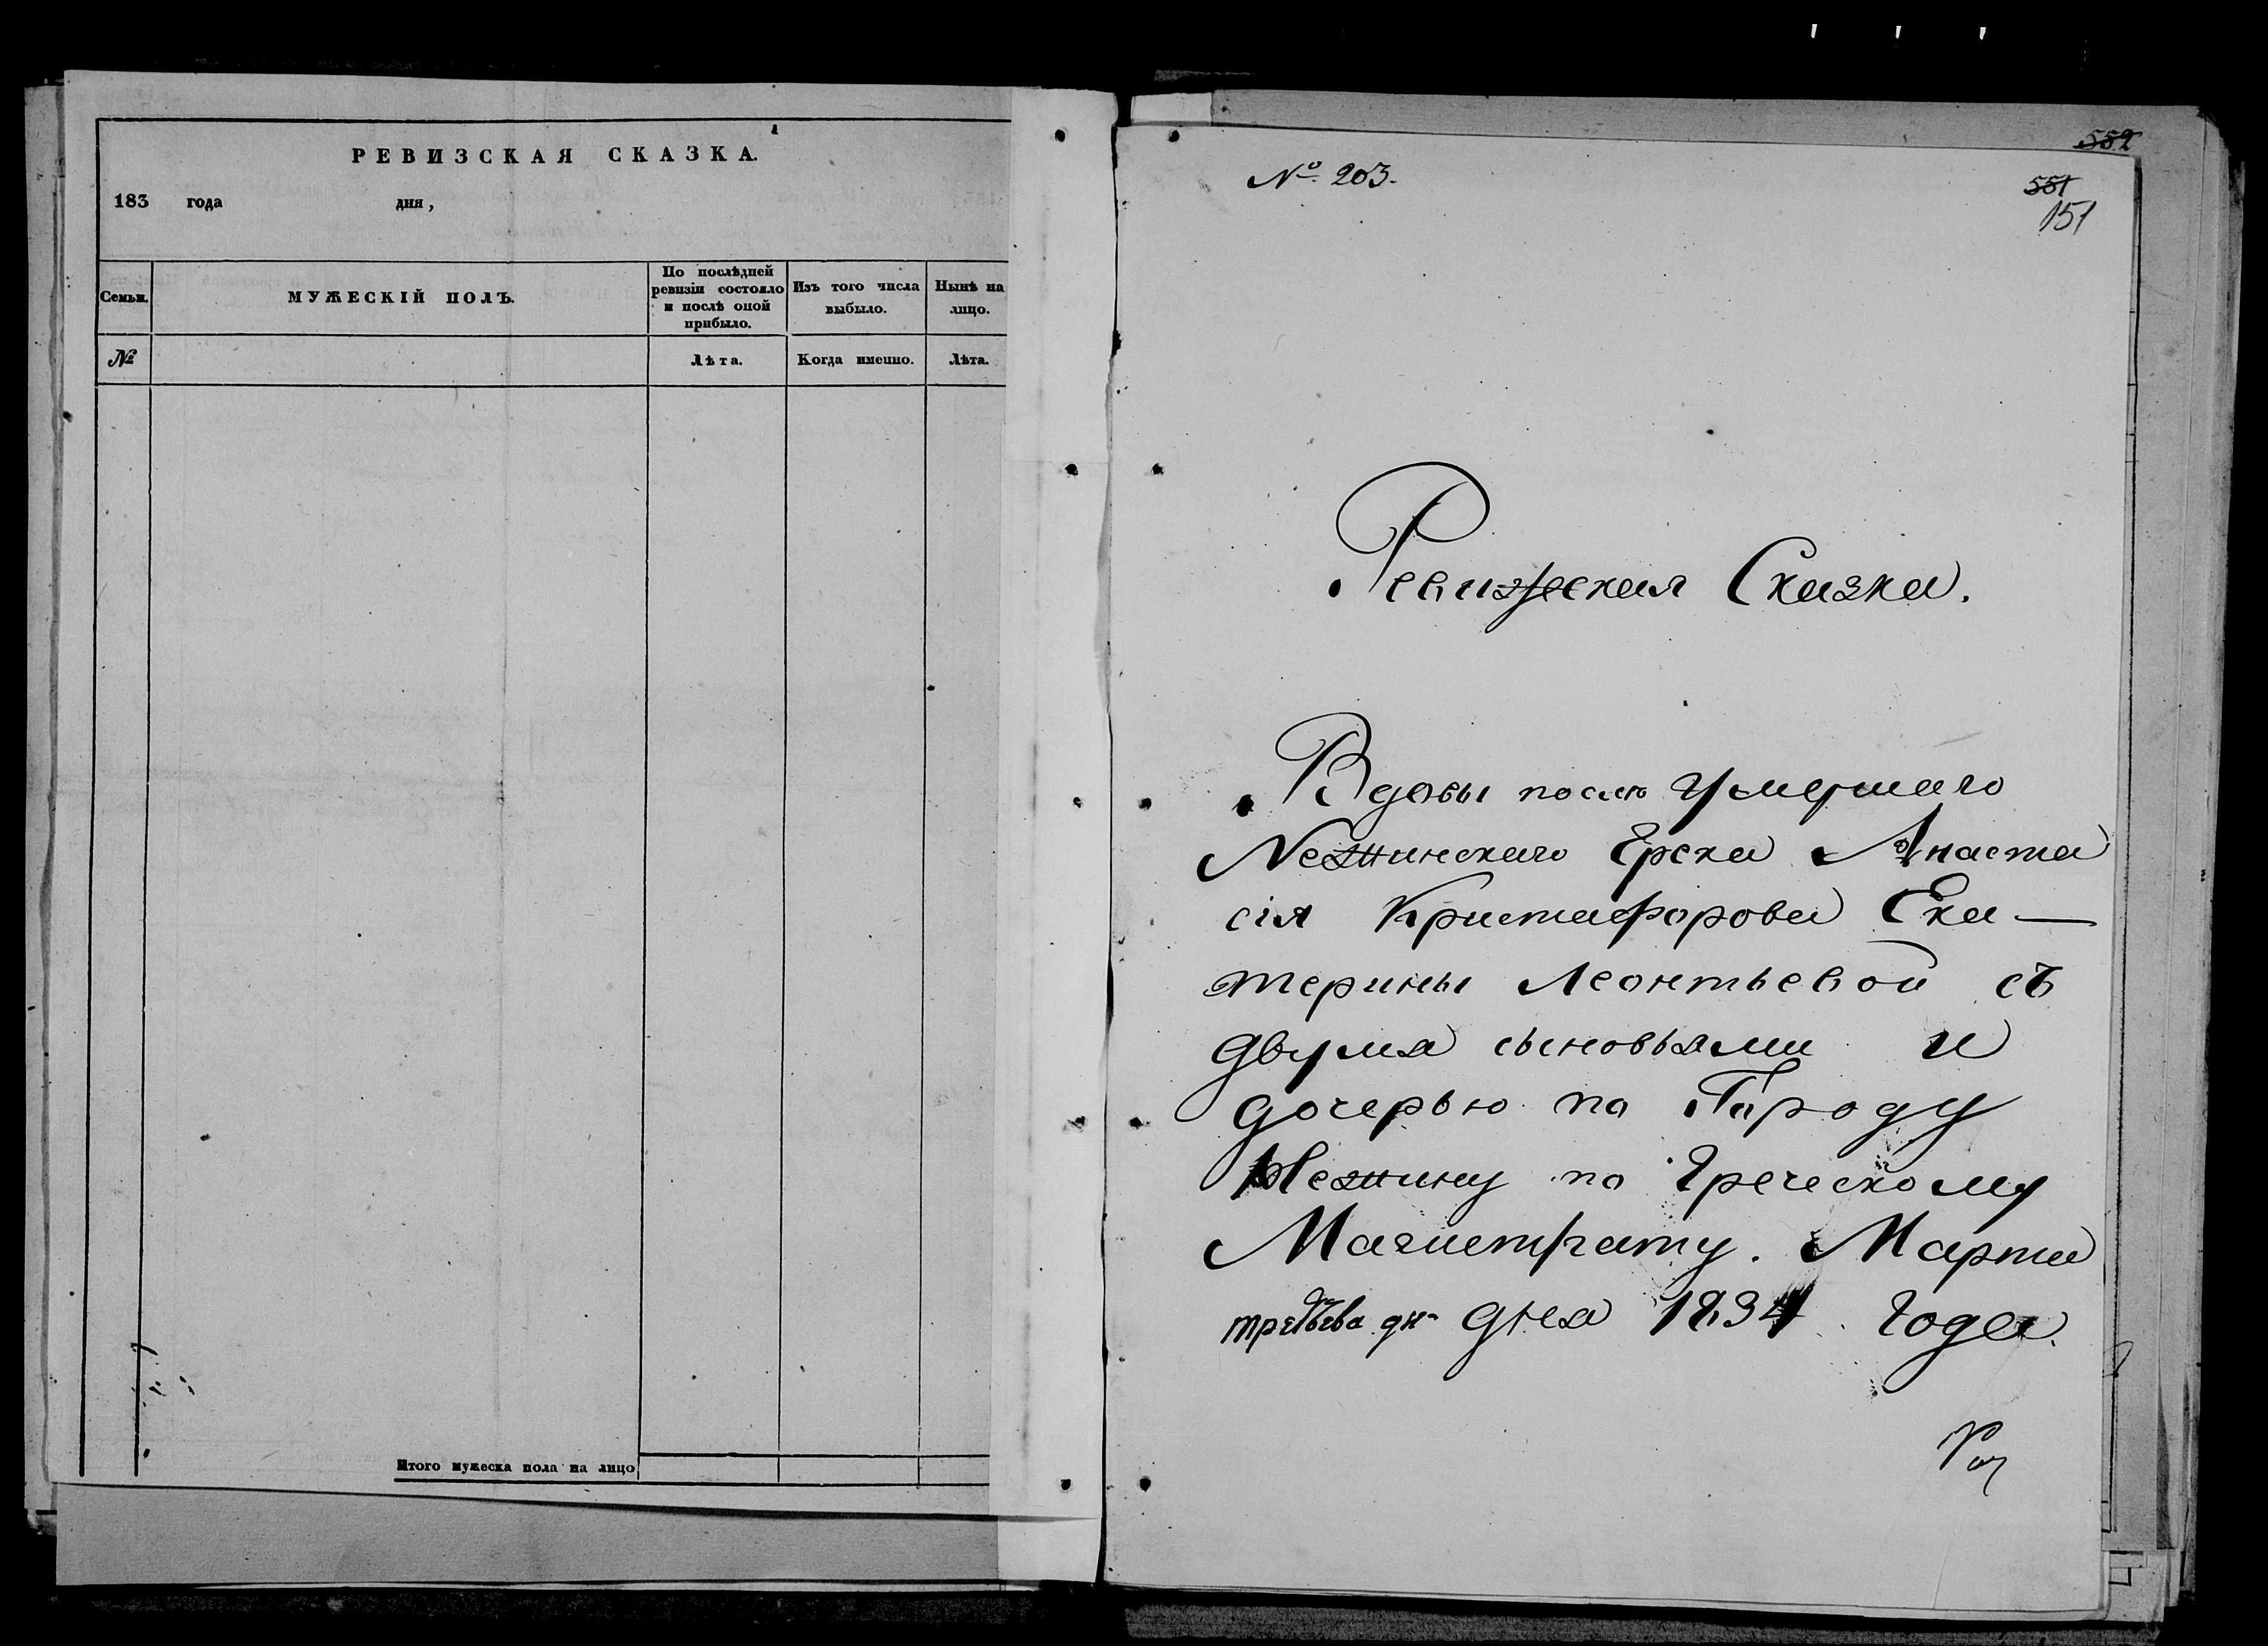 РЕВИЗСКАЯ СКАЗКА.
183 года дня,
Семьи.
МУЖЕСКІЙ ПОЛЪ.
По послѣдней
ревизіи состояло
и послѣ оной
прибыло.
Изъ того числа
выбыло.
Нынѣ на
лицо.
№
Лѣта.
Когда именно.
Лѣта.
Итого мужеска пола на лицо
552
№. 203.
551
151
Ревижская Сказка.
Вдовы послѣ Умершаго
Нежинскаго Грека Анаста
сія Кристафорова Ека—
терины Леонтьевой съ
двумя сыновьями и
дочерью по Городу
Нежину по Греческому
Магистрату. Марта
дня 1834 Года.